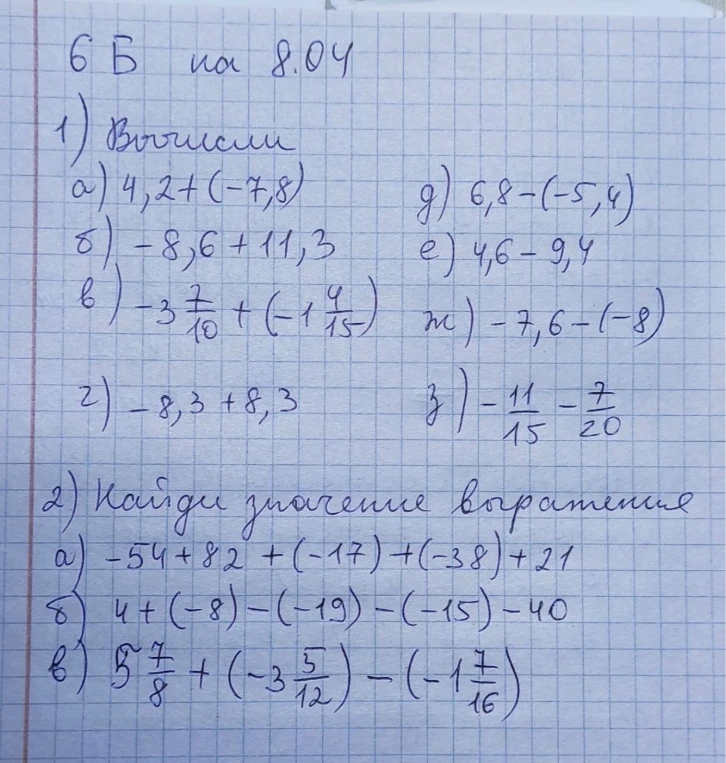 6 Б на 8.04
1) Вычисли
а) 4,2+(-7,8)
д) 6,8-(-5,4)
б) -8,6+11,3
е) 4,6-9,4
в) -3 7/10 + (-1 4/15)
ж) -7,6-(-8)
г) -8,3+8,3
з) -11/15 - 7/20
2) Найди значение выражения
а) -54+82+(-17)+(-38)+21
б) 4+(-8)-(-19)-(-15)-40
в) 5 7/8 + (-3 5/12) - (-1 7/16)